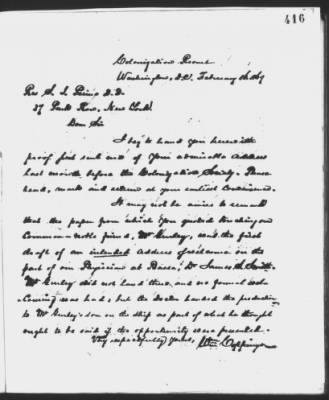 416
Colonization Rooms
Washington, D.C. February 16, 1869
Rev. S. I. Prime D.D.
37 Park Row, New York.
Dear Sir
I beg to hand you herewith
proof just sent me of your admirable address
last month before the Colonization Society. Please
read, mark and return at your earliest convenience.
It may not be amiss to remark
that the paper from which you quoted touching our
common noble friend, Mr. Gurley, was the first
draft of an intended address of welcome on the
part of our Physician at Bassa, Dr. James S. Smith.
Mr. Gurley did not land there, and no formal
coming was had, but the Doctor handed the production
to Mr. Gurley's son on the ship as part of what he thought
ought to be said if the opportunity was presented.
Very respectfully yours, Wm. Coppinger